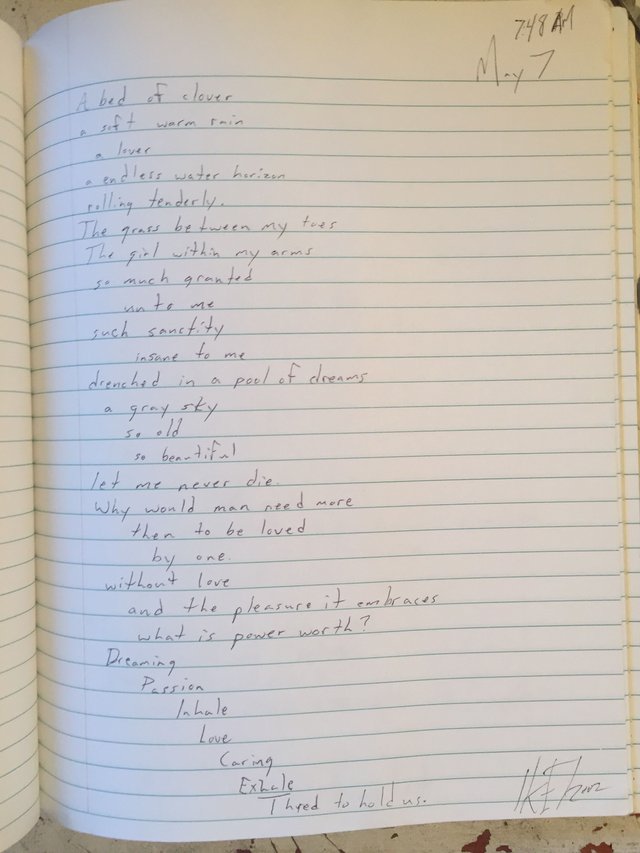 7:48 AM
May 7
A bed of clover
a soft warm rain
a lover
a endless water horizon
rolling tenderly.
The grass between my toes
The girl within my arms
so much granted
unto me
such sanctity
insane to me
drenched in a pool of dreams
a gray sky
so old
so beautiful
let me never die.
Why would man need more
then to be loved
by one.
without love
and the pleasure it embraces
what is power worth?
Dreaming
Passion
Inhale
Love
Caring
Exhale
Thred to hold us.